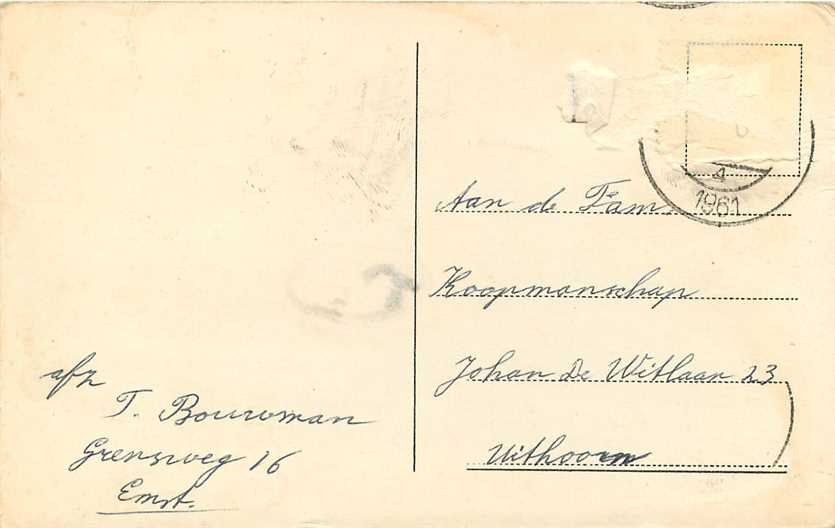 afz
T. Bouwman
Grensweg 16
Emst.
4
1961
Aan de Fam.
Koopmanschap
Johan De Witlaan 23
Uithoorn